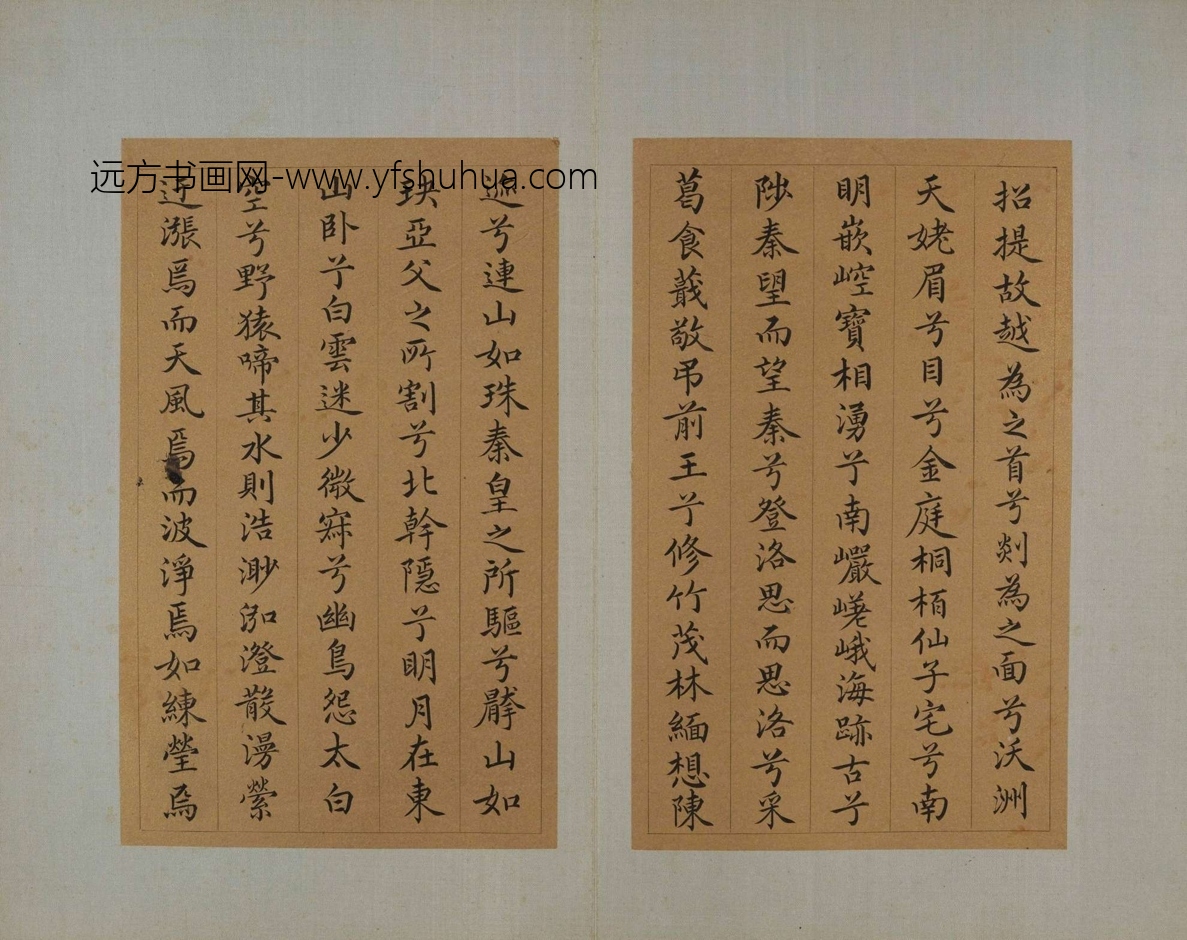 招提故越為之首兮剡為之面兮沃洲
天姥眉兮目兮金庭桐栢仙子宅兮南
明嵌崆寶相湧兮南巖嵯峨海跡古兮
陟秦望而望秦兮登洛思而思洛兮采
葛食蕺敬吊前王兮修竹茂林緬想陳
迹兮連山如珠秦皇之所驅兮擘山如
玦亞父之所割兮北幹隱兮明月在東
山卧兮白雲迷少微寂兮幽鳥怨太白
空兮野猿啼其水則浩渺泓澄散漫縈
迂漲焉而天風焉而波淨焉如練瑩焉
远方书画网-www.yfshuhua.com